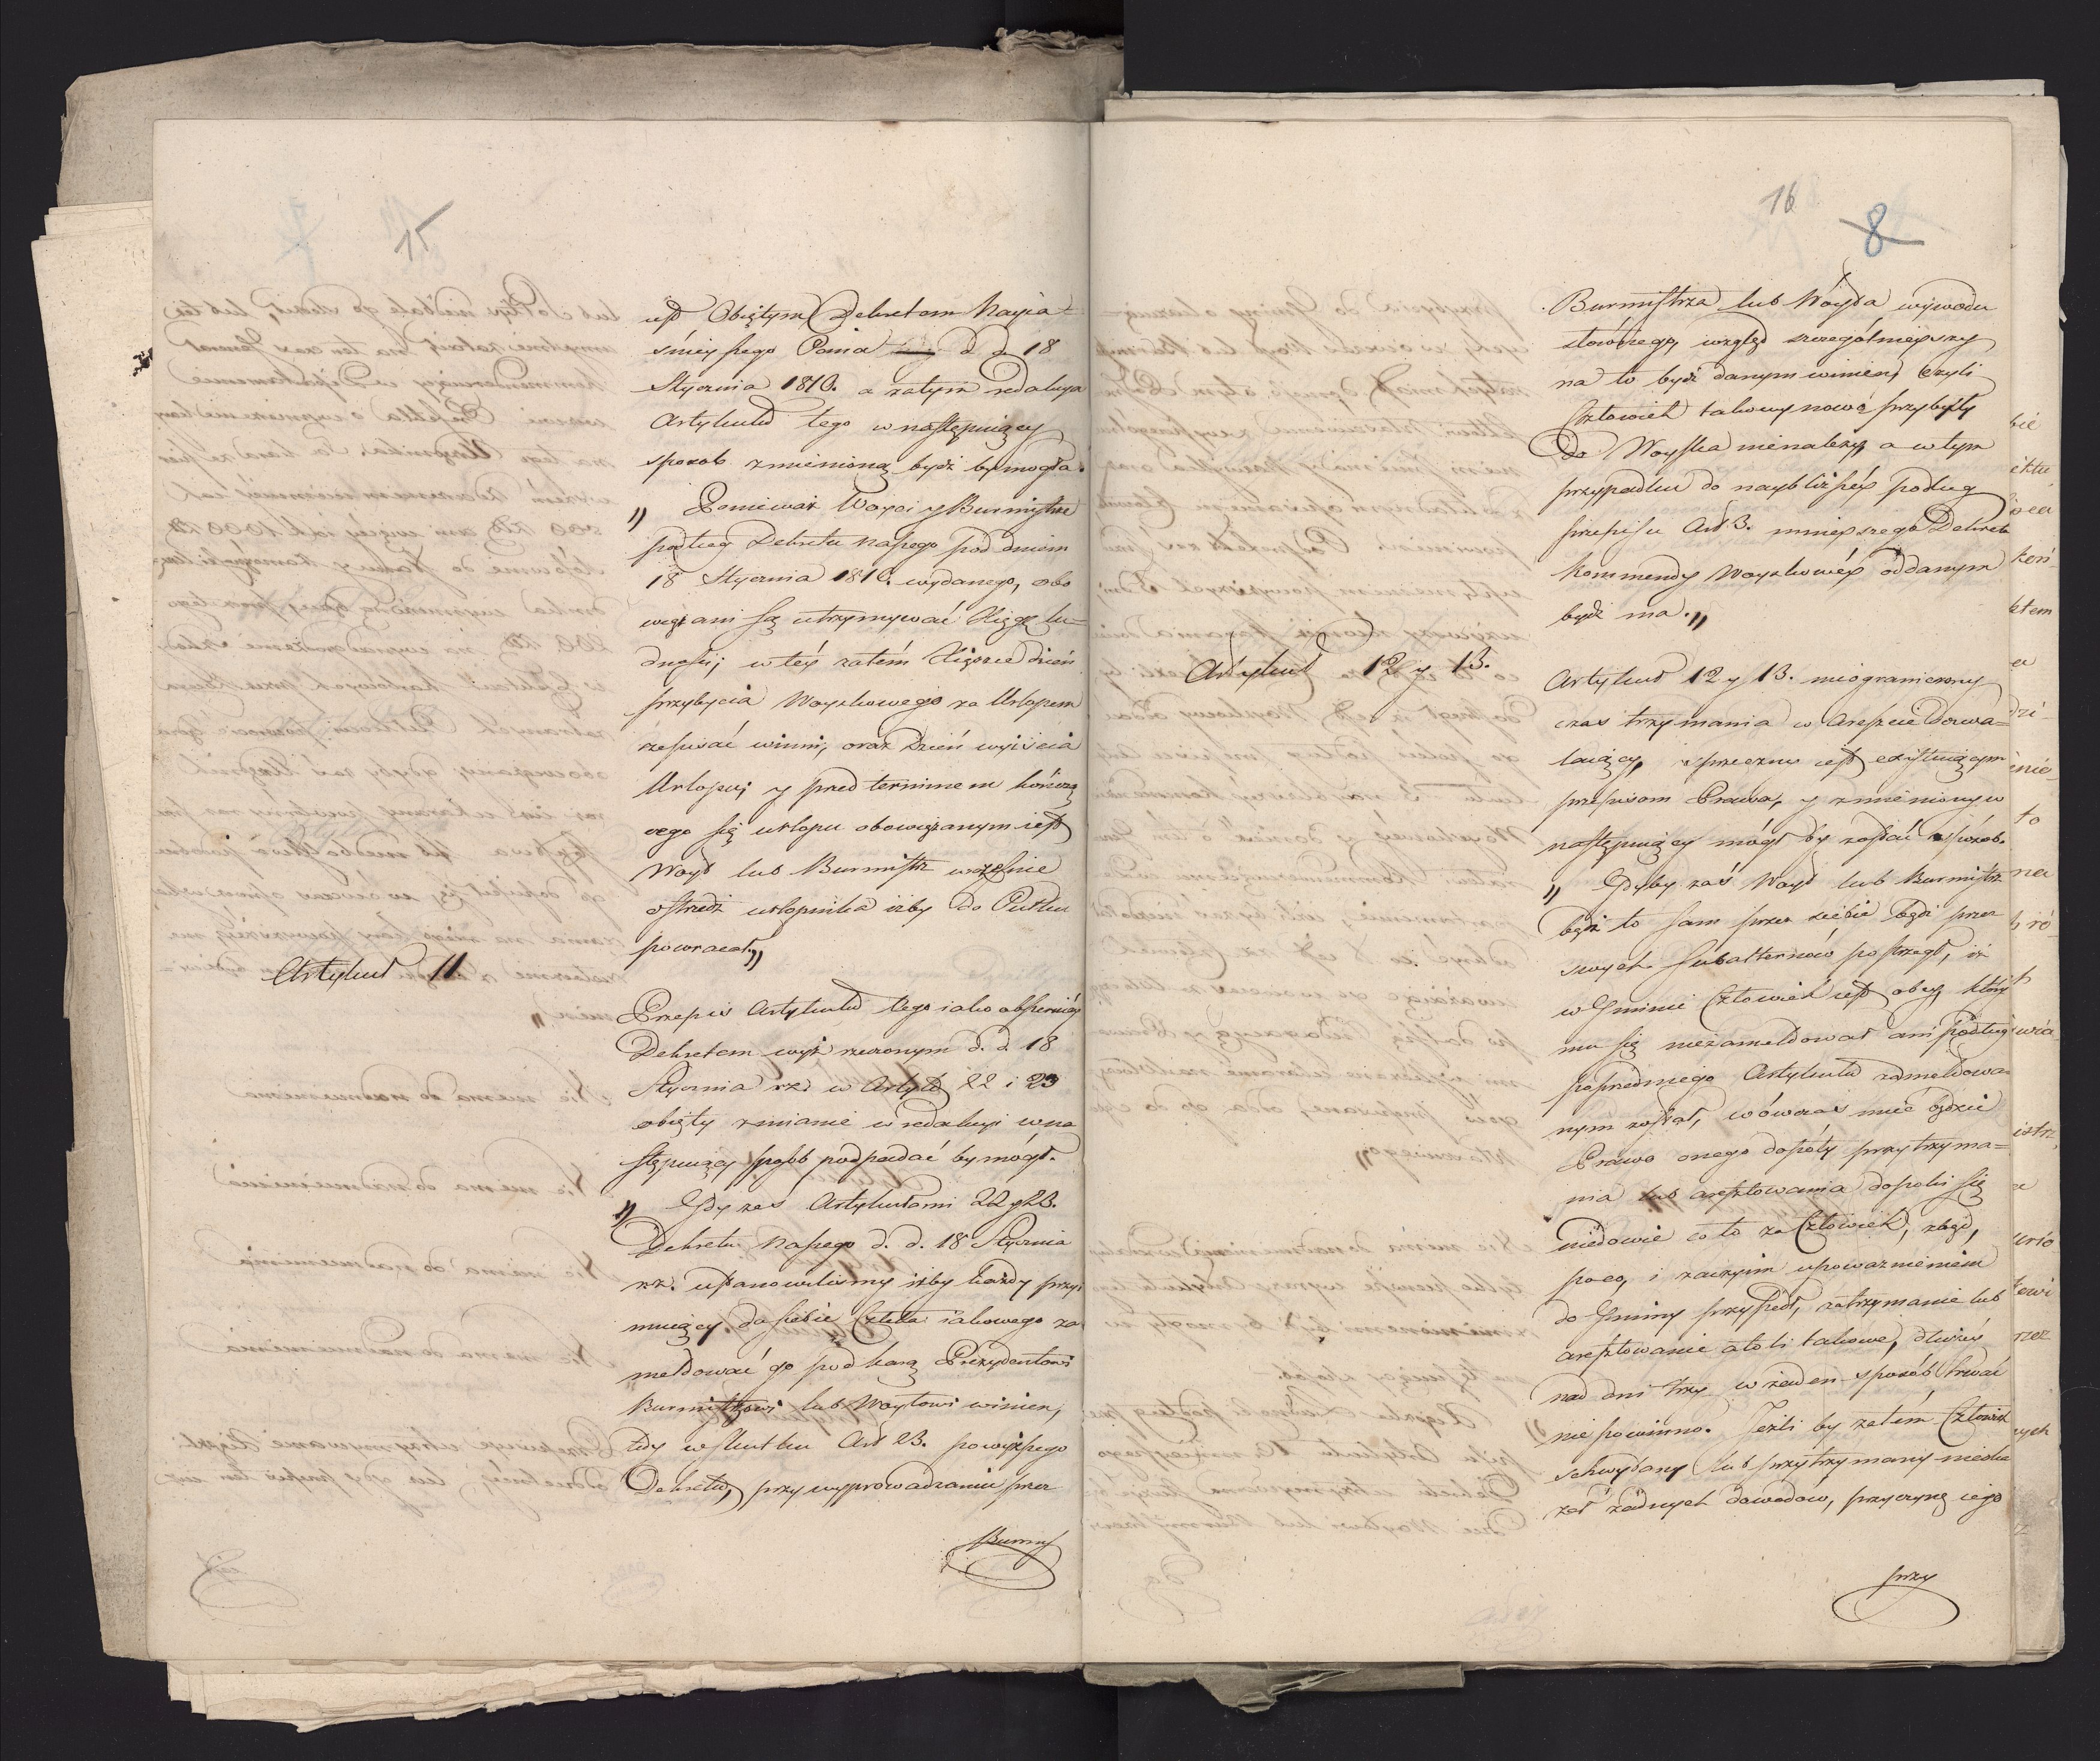 15
iest Obiętym Dekretem Nayia-
śnieyszego Pana d. d. 18
Stycznia 1810. a zatym redakcya
Artykułu tego w następuiący
sposob zmienioną bydź by mogła.
„ Ponieważ Woyci y Burmistrze
podług Dekretu naszego pod dniem
18 Stycznia 1810. wydanego, obo
wiązani są utrzymywać Xięgę lu-
dności, w téy zatém Xiędze dzień
przybycia Woyskowego za Urlopem
zapisać winni, oraz dzień wyiścia
Urlopu, y przed terminem kończą
cego się urlopu obowiązanym iest
Woyt lub Burmistrz wcześnie
ostrzedz urlopnika iżby do Pułku
powracał„
Artykuł 11.
Przepis Artykułu tego iako obszerniéy
Dekretem wyż rzeczonym d. d. 18
Stycznia rz. w Artyk 22 i 23
obięty zmianie w redakcyi w na
stępuiący sposob podpadać by mógł.
„ Gdy zas Artykułami 22 y 23.
Dekretu Naszego d. d. 18 Stycznia
rz. ustanowiliśmy iżby każdy przyi
muiący do siebie Człeka iakowego za
meldować go pod karą Prezydentowi
Burmistrzowi lub Woytowi winien,
tedy w skutku Art 23. powyższego
Dekretu, przy wyprowadzaniu przez
Burmis
16
8
Burmistrza lub Woyta wywodu
słownego, wzgląd szczególnieyszy
na to bydź danym winien, czyli
Człowiek takowy nowo przybyły
do Woyska nienależy, a w tym
przypadku do naybliższéy podług
przepisu Art 3. ninieyszego Dekretu
kommendy Woyskowéy oddanym
bydź ma.„
Artykuł 12 y 13.
Artykuł 12 y 13. nieograniczony
czas trzymania w Areszcie dozwa-
laiący, sprzeczny iest exystuiącym
przepisom Prawa, y zmieniony w
następuiący mógł by zostać sposob.
„ Gdyby zaś Woyt lub Burmistrz
bądź to sam przez siebie bądź przez
swych Subalternów postrzegł, iż
w Gminie Człowiek iest obcy, który
mu się niezameldował ani podług
poprzedniego Artykułu zameldowa-
nym został, wówczas mieć będzie
Prawo onego dopóty przytrzyma-
nia lub aresztowania dopoki się
niedowie co to za Człowiek, zkąd,
poco, i za czyim upoważnieniem
do Gminy przyszedł, zatrzymanie lub
aresztowanie atoli takowe, dłużéy
nad dni trzy w żaden sposób trwać
nie powinno. Jeżli by zatém Człowiek
schwytany lub przytrzymany nieoka
zał żadnych dowodów, przyczynę iego
przy